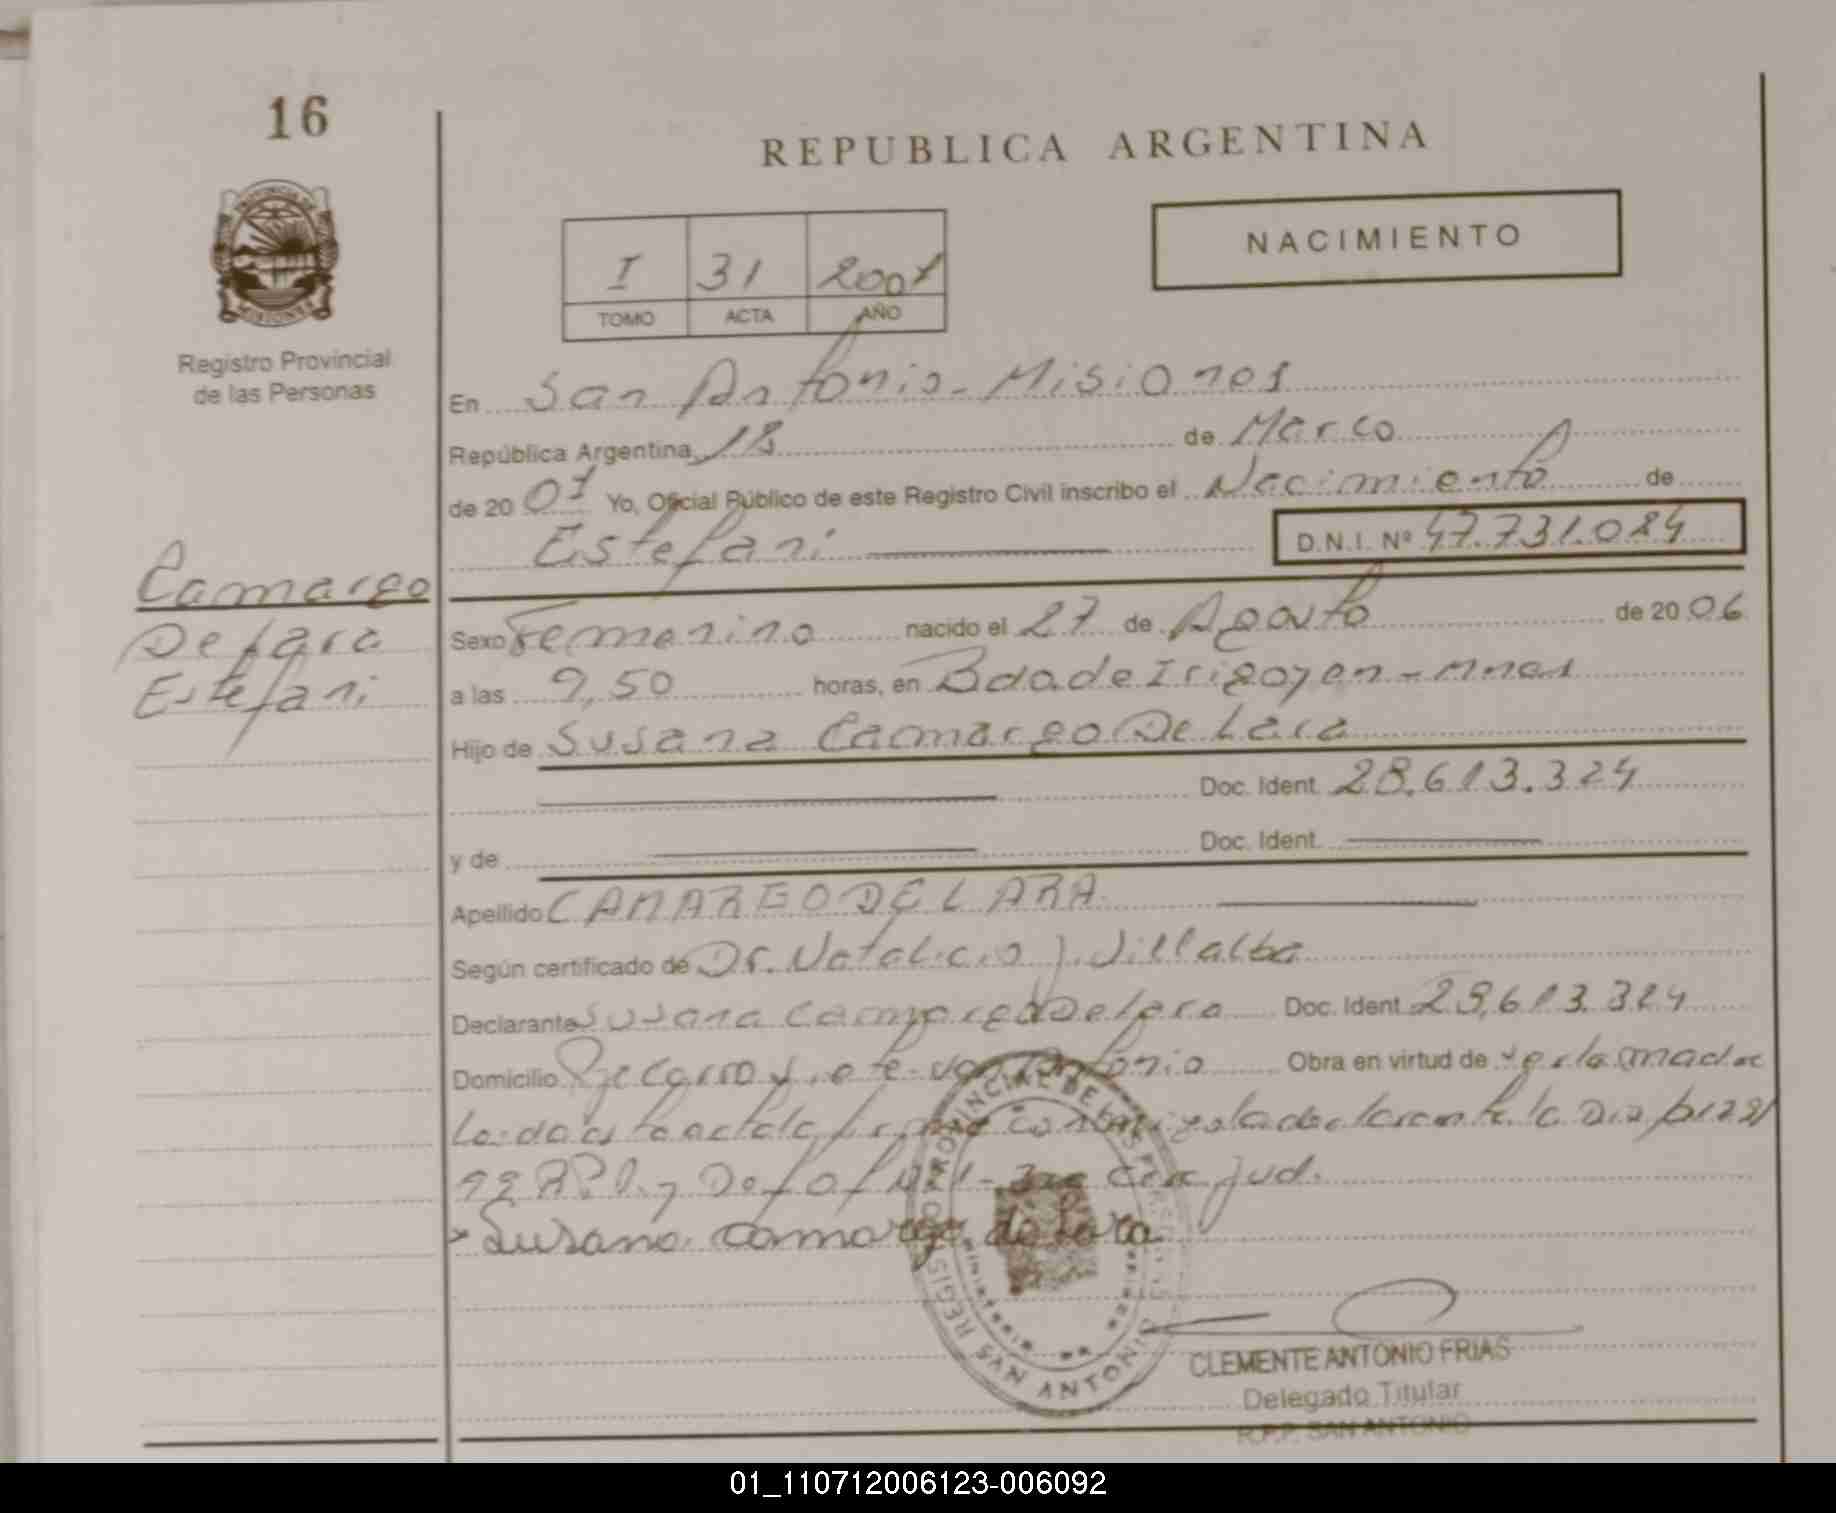 16
REPUBLICA ARGENTINA
NACIMIENTO
I 31 2007
TOMO ACTA AÑO
Registro Provincial
de las Personas
En San Antonio - Misiones
República Argentina, 18 de Marco
de 20 07 Yo, Oficial Público de este Registro Civil inscribo el Nacimiento de
Estefani
D.N.I. Nº 47.731.084
Camargo
De Lara
Estefani
Sexo Femenino nacido el 27 de Agosto de 20 06
a las 9,50 horas, en Bdo de Irigoyen - Mnes
Hijo de Susana Camargo De Lara
Doc. Ident. 28.613.324
y de Doc. Ident.
Apellido CAMARGO DE LARA
Según certificado de Dr. Natalicio J. Villalba
Declarante Susana Camargo De Lara Doc. Ident 28.613.324
Domicilio San Antonio Obra en virtud de ser la madre
Leida el acta la firma conmigo la declarante la
Susana Camargo de Lara
REGISTRO PROVINCIAL DE LAS PERSONAS
SAN ANTONIO
CLEMENTE ANTONIO FRIAS
Delegado Titular
R.P.P. SAN ANTONIO
01_110712006123-006092